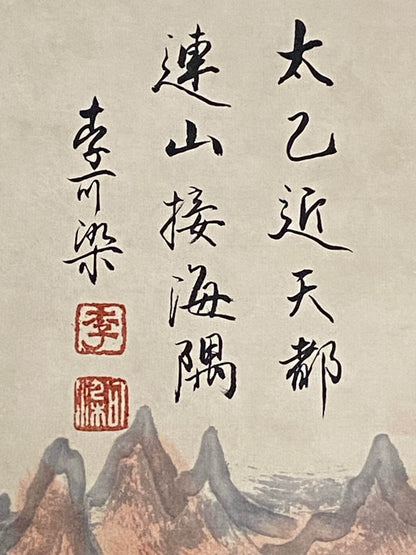 太乙近天都
連山接海隅
李可染
李
可染